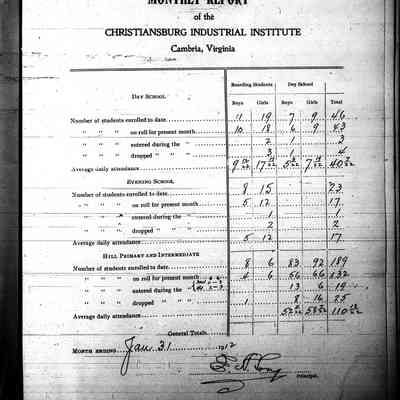 MONTHLY REPORT
of the
CHRISTIANSBURG INDUSTRIAL INSTITUTE
Cambria, Virginia
Boarding Students Day School
DAY SCHOOL Boys Girls Boys Girls Total
Number of students enrolled to date 11 19 7 9 46
" " " on roll for present month 10 18 6 9 43
" " " entered during the " 2 1 3
" " " dropped " " 3 1 4
Average daily attendance
EVENING SCHOOL
Number of students enrolled to date 8 15 23
" " " on roll for present month 5 12 17
" " " entered during the " 1 1
" " " dropped " " 2 2
Average daily attendance 5 12 17
HILL PRIMARY AND INTERMEDIATE
Number of students enrolled to date 8 6 83 92 189
" " " on roll for present month 4 6 56 66 132
" " " entered during the " 13 6 19
" " " dropped " " 1 8 16 25
Average daily attendance
General Totals
MONTH ENDING Jan 31 1912
Principal.